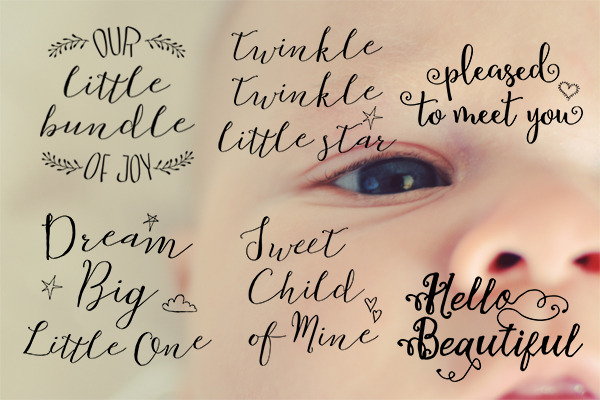 OUR
little
bundle
OF JOY
twinkle
twinkle
little star
pleased
to meet you
Dream
Big
Little One
Sweet
Child
of Mine
Hello
Beautiful